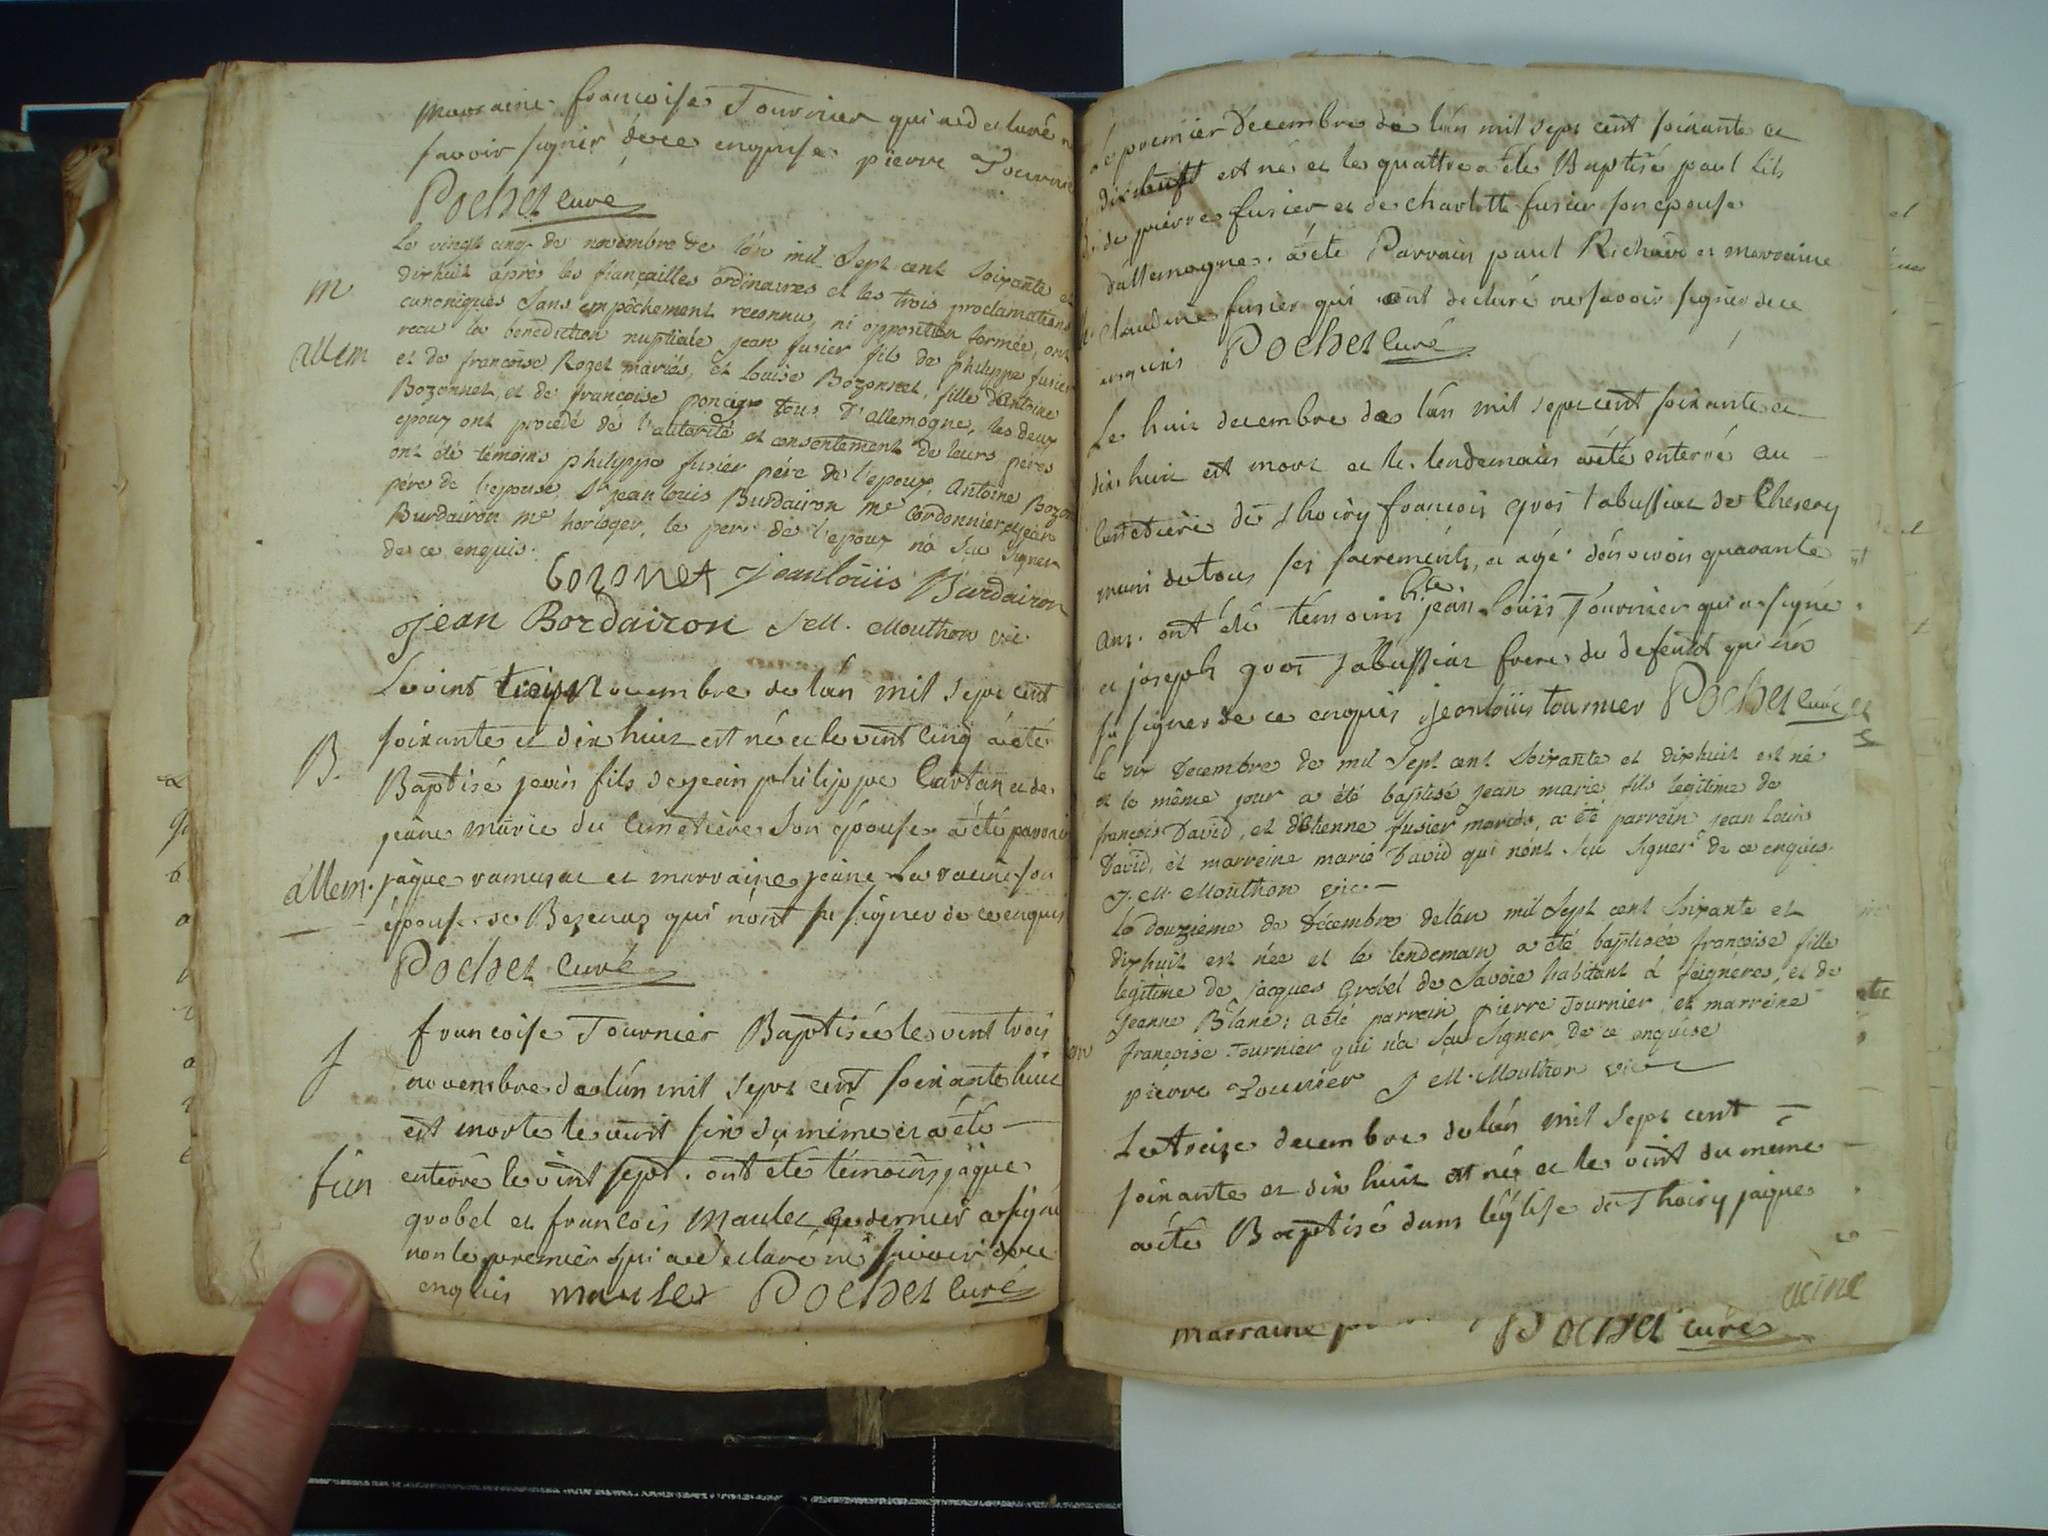 marraine francoise Tournier qui a declaré n
savoir signer de ce enquise pierre Tournie
Pochet curé
Le vingt cinq de novembre de l'an mil sept cent soixante et
dixhuit après les fiançailles ordinaires et les trois proclamations
m
canoniques sans empêchement reconnu, ni opposition formée, ont
recu la benediction nuptiale jean fusier fils de philippe fusier
allem
et de francoise Rozet mariés, et Louise Bozonnet, fille d'Antoine
Bozonnet, et de françoise poncet tous d'allemogne, les deux
epoux ont procedé de l'autorité et consentement de leurs péres
ont été témoins philippe fusier pére de l'epoux, Antoine Bozon
pére de l'epouse, Sr jean louis Burdairon me cordonnier et jean
Burdairon me horloger, le pere de l'epoux n'a scu signer
de ce enquis.
bozonet jean louis Burdairon
jean Bordairon J M. Mouthon vic.
Le vint trois novembre de l'an mil sept cent
soixante et dix huit est né et le vint cinq a été
B.
Baptisé jean fils de jean philippe Cartan et de
jeane marie du cimetière son épouse a été parrain
allem.
jaque ramusat et marraine jeane La racine son
épouse de Bezenaz qui n'ont su signer de ce enquis
Pochet curé
francoise Tournier Baptisée le vint trois
f
novembre de l'an mil sept cent soixante huit
est morte le vint six du même et a été
enterré le vint sept. ont été témoins jaque
fén
grobel et francois maulet ce dernier a signé
non le premier qui a déclaré ne savoir de ce
enquis maulet Pochet curé
Le premier decembre de l'an mil sept cent soixante et
dix huit est né et le quattre a été Baptisé paul fils
de pierre fusier et de charlotte fusier son epouse
d'allemogne. a été Parrain paul Richard et marraine
Claudine fusier qui ont declaré ne savoir signer de ce
enquis Pochet curé
Le huit decembre de l'an mil sept cent soixante et
dix huit est mort et le lendemain a été enterré au
cimetière de thoiry francois gros tabussiat de Chesery
muni de tous ses sacrements, et agé d'environ quarante
ans. ont été temoins jean louis Tournier qui a signé
et joseph gros tabussiat frere du defunt qui n'a
su signer de ce enquis jean louis tournier Pochet curé
le dix decembre de mil sept cent soixante et dixhuit est né
et le même jour a été baptisé jean marie fils legitime de
françois David, et d'Etienne fusier mariés, a été parrein jean Louis
David, et marreine marie David qui n'ont scu signer de ce enquis.
J. M. Mouthon vic
le douzieme de décembre de l'an mil sept cent soixante et
dixhuit est née et le lendemain a été baptisée francoise fille
legitime de jacques Grobel de Savoie habitant à feignéres, et de
jeanne Blanc; a été parrein pierre Tournier, et marreine
françoise Tournier qui n'a scu signer de ce enquise
pierre Tournier J M. Mouthon vic
Le treize decembre de l'an mil sept cent
soixante et dix huit est né et le vint du même
a été Baptisé dans l'église de Thoiry jaque
marraine
Pochet curé